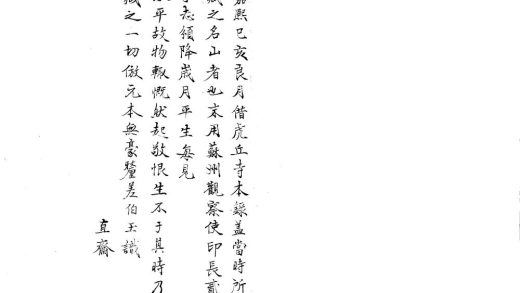 熙己亥良月借虎丘寺本錄蓋當時所
藏之名山者也末用蘇州觀察使印長
志領降歲月平生每見
平故物輒慨然起敬恨生不于其時乃
藏之一切倣元本無豪釐差伯玉識
直齋